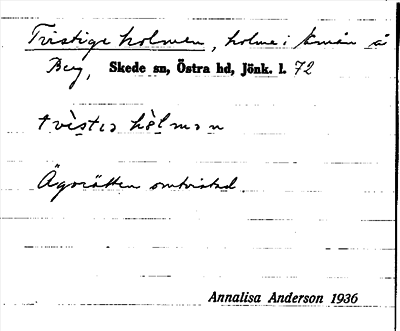 Tvistige holmen, holme i Emån å
Berg, Skede sn, Östra hd, Jönk. l. 72
tvìstɩɜ hòlmɜn
Äganrätten omtvistad.
Annalisa Anderson 1936